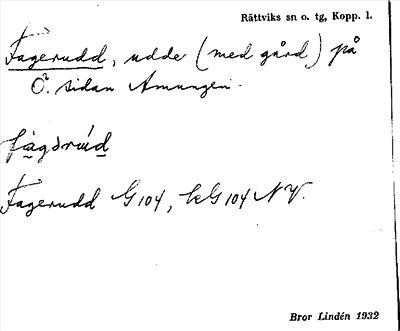 Rättviks sn o. tg, Kopp. l.
Fagerudd, udde (med gård) på
Ö. sidan Amungen.
fàgərúd
Fagerudd G 104, LeG 104 N V.
Bror Lindén 1932